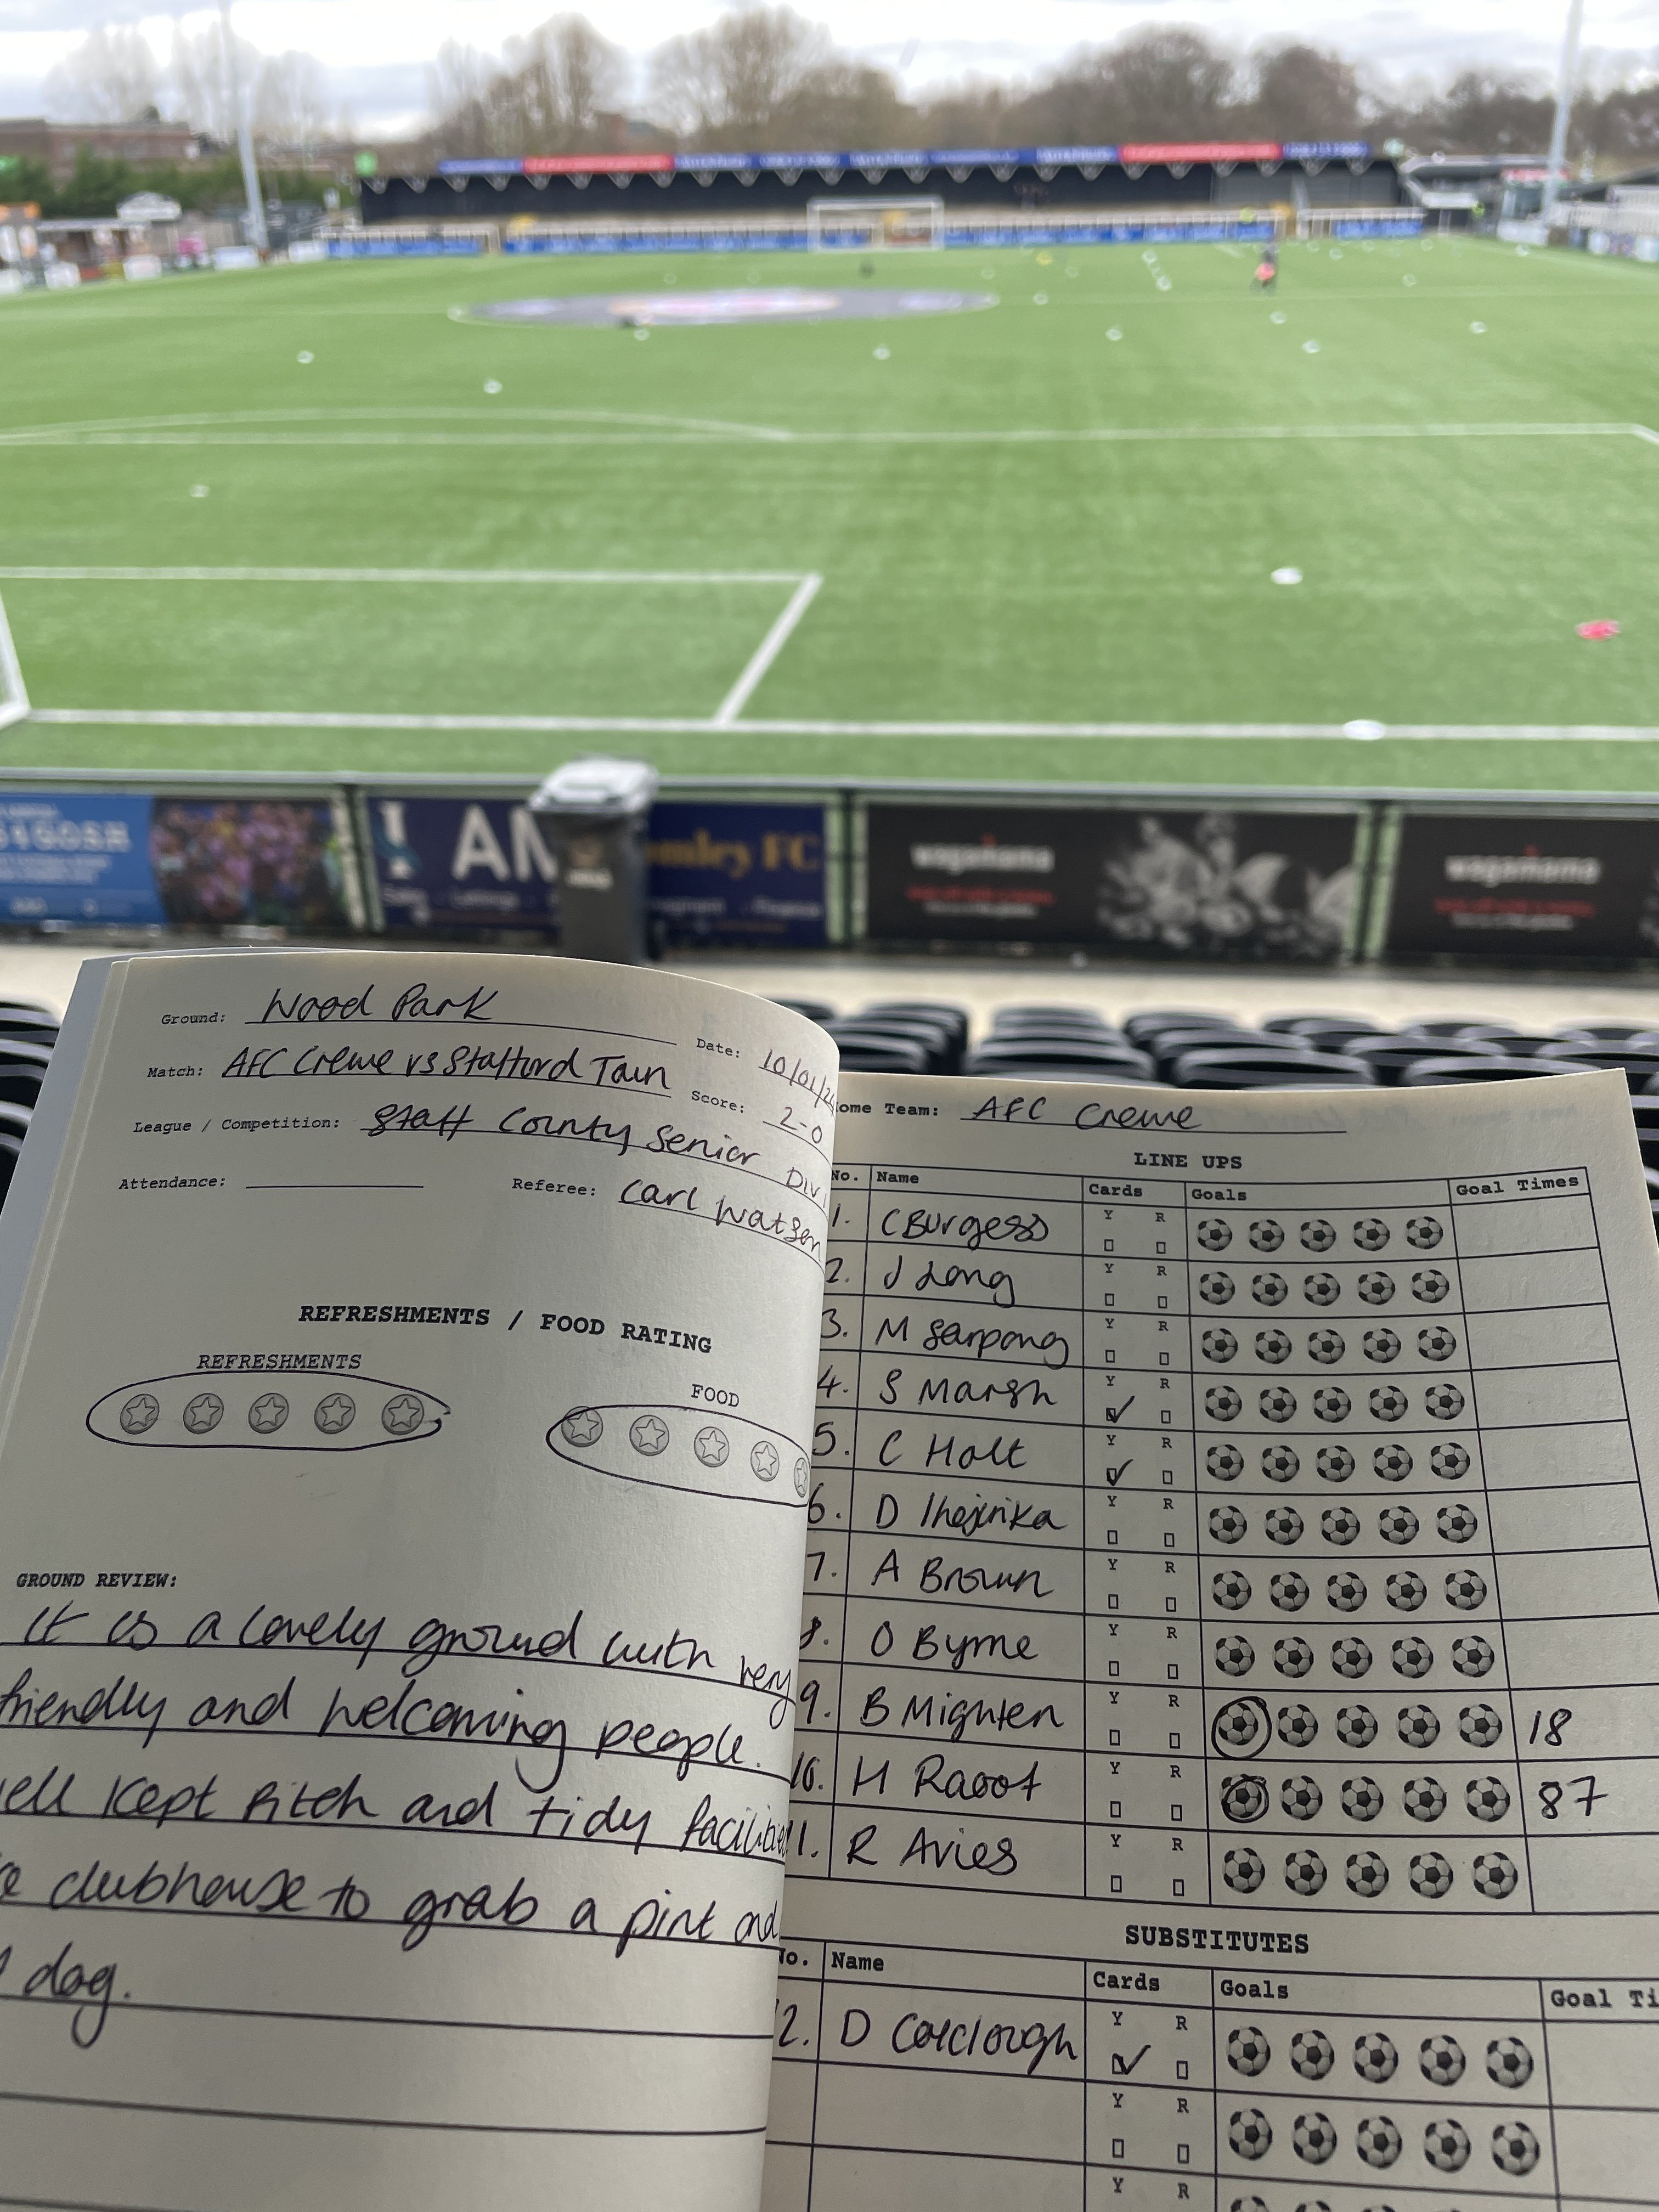 AM
mley FC
wagamama
wagamama
Ground: Wood Park
Date: 10/01/2
Match: AFC Crewe vs Stafford Town
Score: 2-0
League / Competition: Staff County Senior Div 1
Attendance:
Referee: Carl Watson
REFRESHMENTS / FOOD RATING
REFRESHMENTS
FOOD
GROUND REVIEW:
It is a lovely ground with very
friendly and welcoming people.
ell kept pitch and tidy facilitie
clubhouse to grab a pint and
dog.
ome Team: AFC Crewe
LINE UPS
No. Name Cards Goals Goal Times
1. C Burgess Y R
2. J Long Y R
3. M Sarpong Y R
4. S Marsh Y R
5. C Holt Y R
6. D Ihejirika Y R
7. A Brown Y R
8. O Byrne Y R
9. B Mighten Y R 18
10. H Raoof Y R 87
11. R Avies Y R
SUBSTITUTES
No. Name Cards Goals Goal Ti
12. D Colclough Y R
Y R
Y R